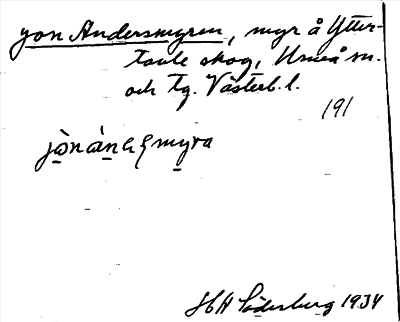 Jon Andersmyren, myr å Ytter-
tavle skog, Umeå sn.
och tg. Västerb. l.
191
HH Söderberg 1934